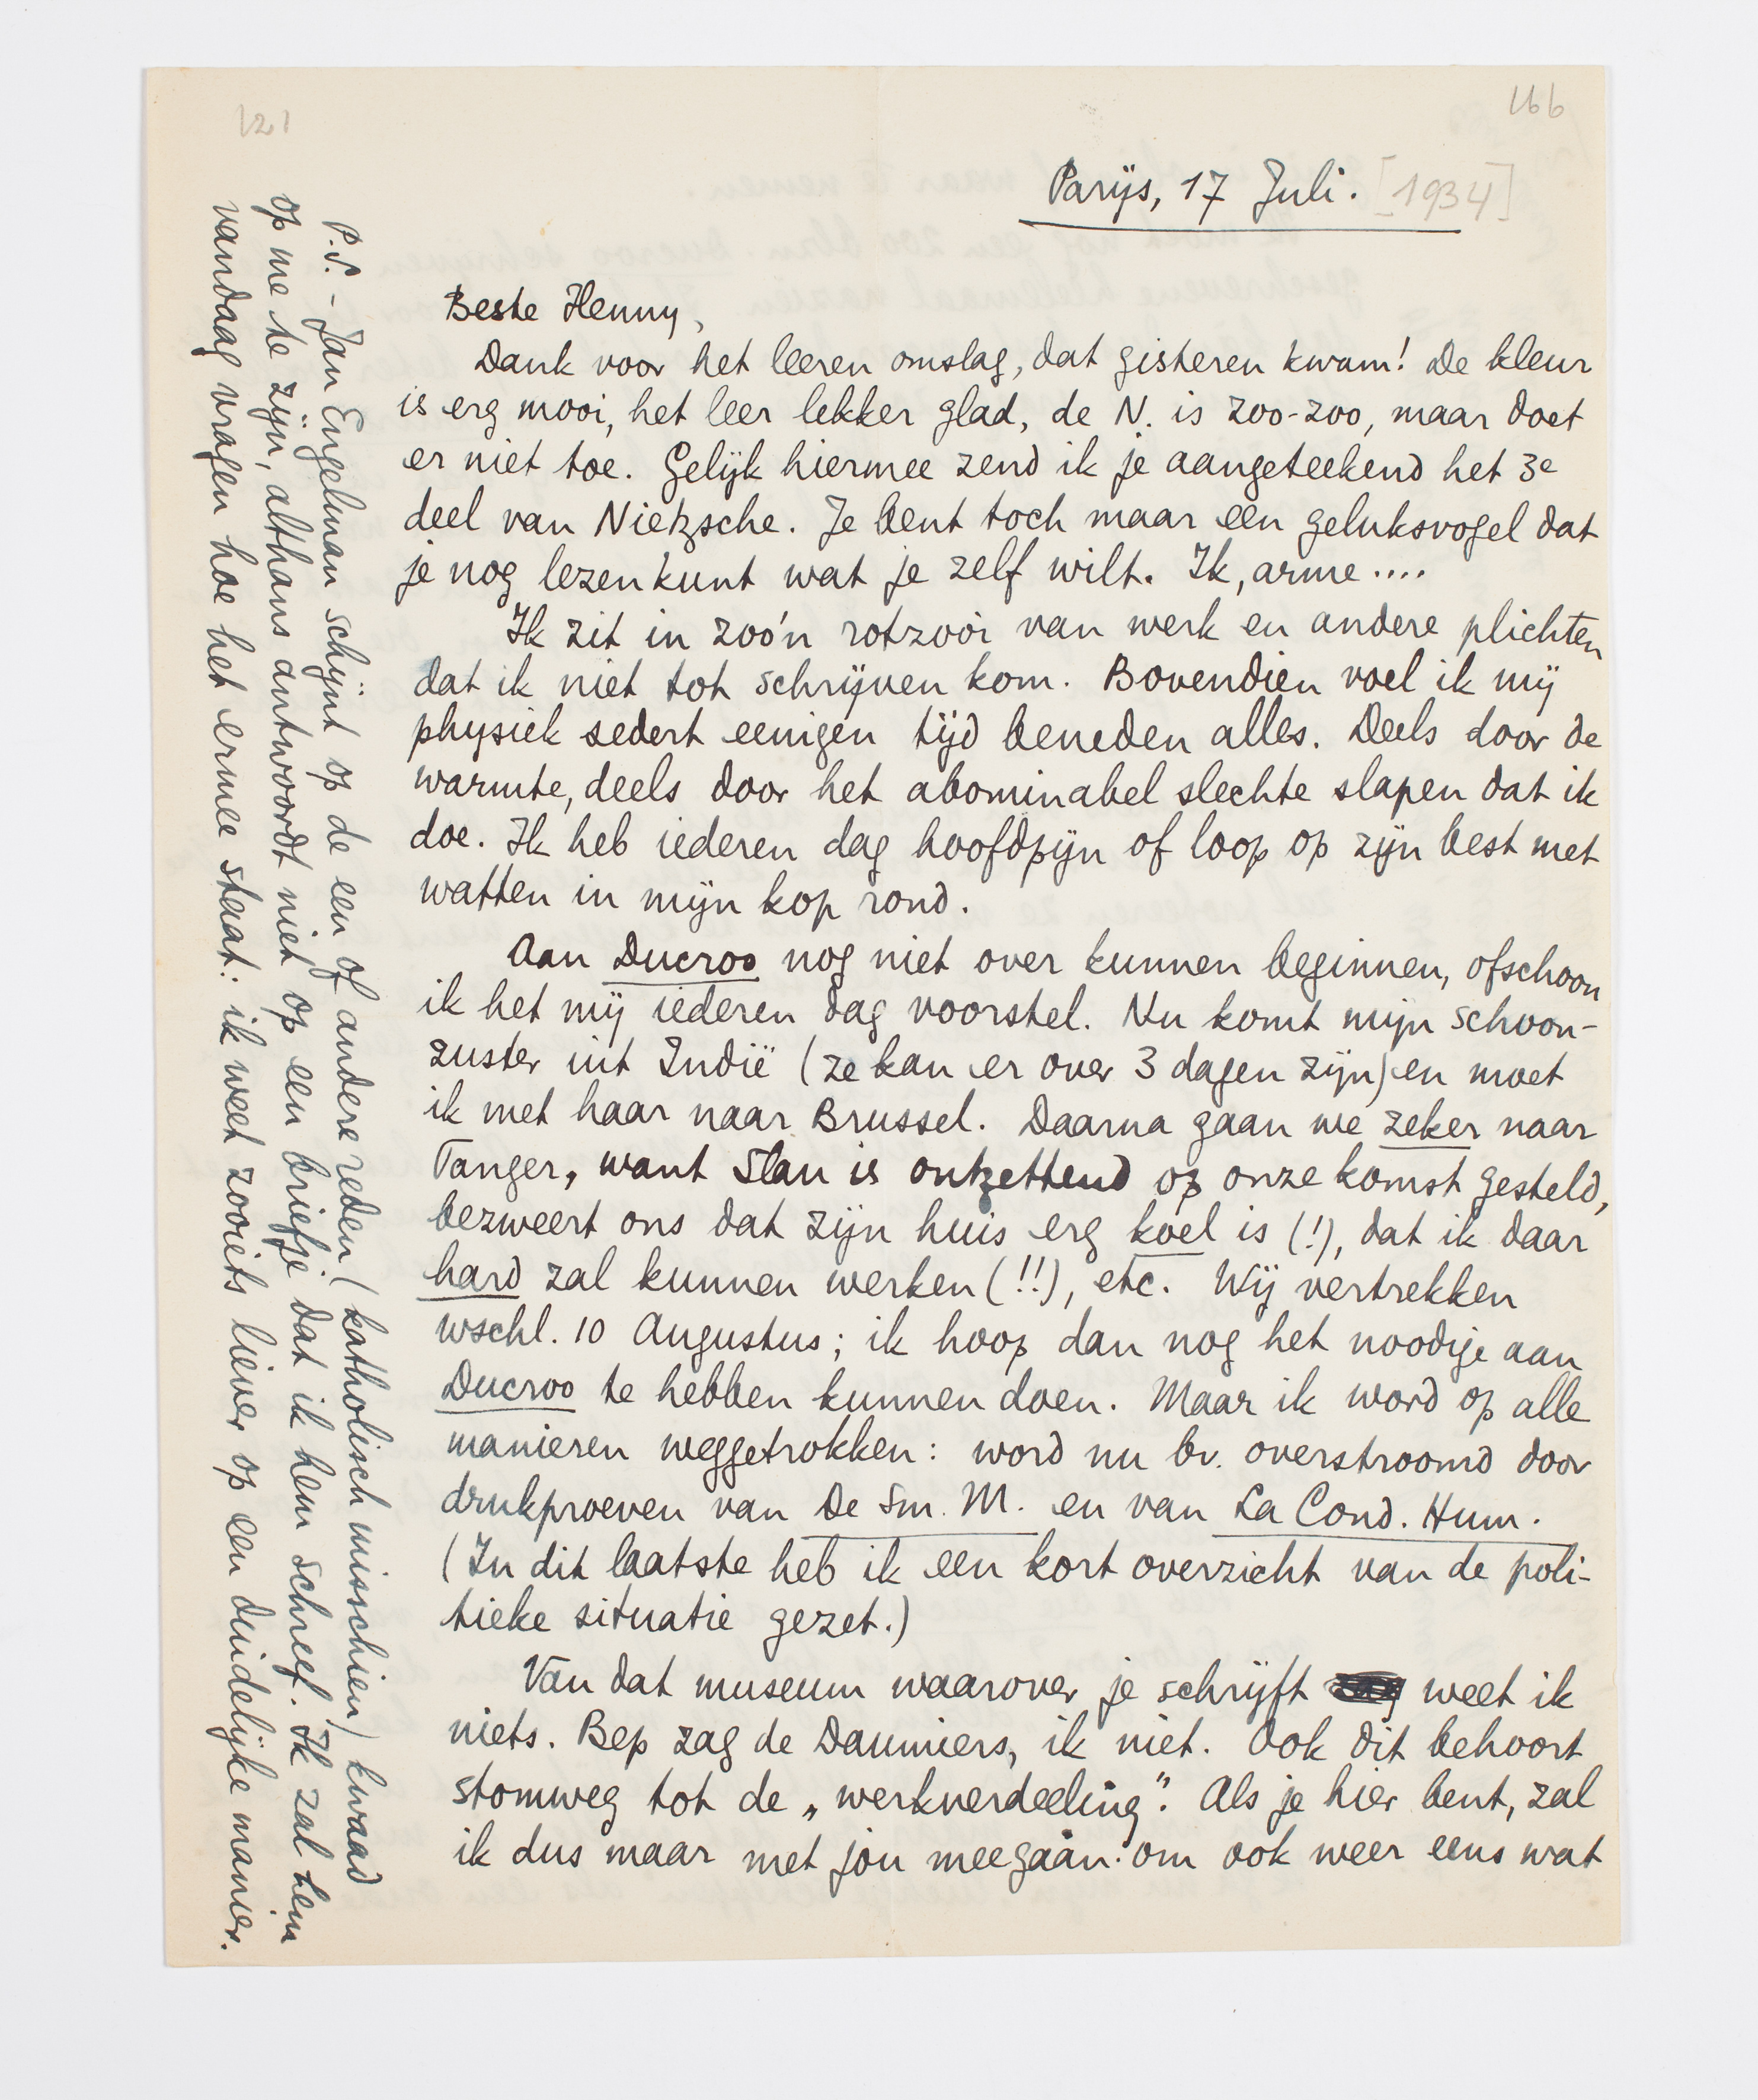 121
166
Parijs, 17 Juli. [1934]
Beste Henny,
Dank voor het leeren omslag, dat gisteren kwam! De kleur
is erg mooi, het leer lekker glad, de N. is zoo-zoo, maar doet
er niet toe. Gelijk hiermee zend ik je aangeteekend het 3e
deel van Nietzsche. Je bent toch maar een geluksvogel dat
je nog lezen kunt wat je zelf wilt. Ik, arme....
Ik zit in zoo'n rotzooi van werk en andere plichten
dat ik niet tot schrijven kom. Bovendien voel ik mij
physiek sedert eenigen tijd beneden alles. Deels door de
warmte, deels door het abominabel slechte slapen dat ik
doe. Ik heb iederen dag hoofdpijn of loop op zijn best met
watten in mijn kop rond.
Aan Ducroo nog niet over kunnen beginnen, ofschoon
ik het mij iederen dag voorstel. Nu komt mijn schoon-
zuster uit Indië (ze kan er over 3 dagen zijn) en moet
ik met haar naar Brussel. Daarna gaan we zeker naar
Tanger, want Slau is ontzettend op onze komst gesteld,
bezweert ons dat zijn huis erg koel is (!), dat ik daar
hard zal kunnen werken (!!), etc. Wij vertrekken
wschl. 10 Augustus; ik hoop dan nog het noodige aan
Ducroo te hebben kunnen doen. Maar ik word op alle
manieren weggetrokken: word nu bv. overstroomd door
drukproeven van De Sm. M. en van La Cond. Hum.
(In dit laatste heb ik een kort overzicht van de poli-
tieke situatie gezet.)
Van dat museum waarover je schrijft weet ik
niets. Bep zag de Daumiers, ik niet. Ook dit behoort
stomweg tot de „werkverdeeling". Als je hier bent, zal
ik dus maar met jou meegaan om ook weer eens wat
P.S. - Jan Engelman schijnt op de een of andere reden (katholisch misschien) kwaad
op me te zijn, althans antwoordt niet op een briefje dat ik hem schreef. Ik zal hem
vandaag vragen hoe het ermee staat: ik weet zooiets liever op een duidelijke manier.